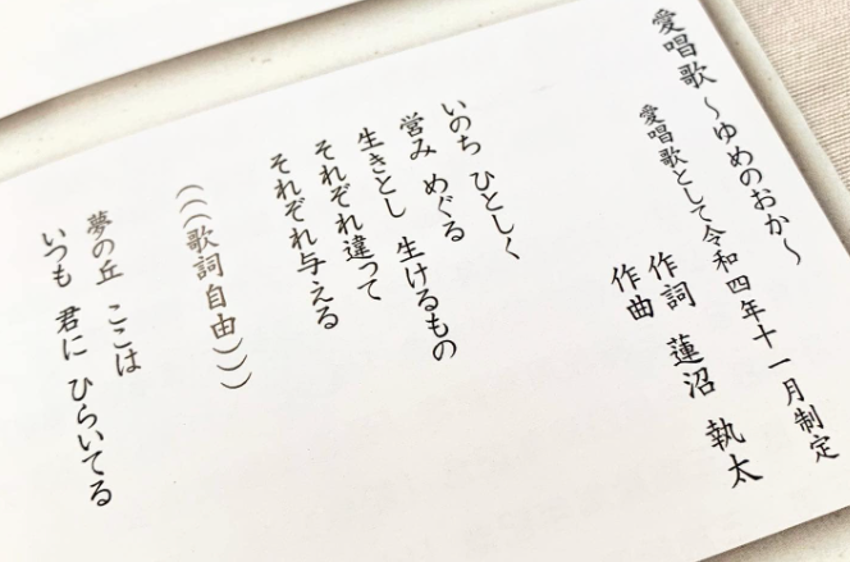 愛唱歌 〜ゆめのおか〜
愛唱歌として令和四年十一月制定
作詞 蓮沼 執太
作曲
いのち ひとしく
営み めぐる
生きとし 生けるもの
それぞれ違って
それぞれ与える
(((歌詞自由)))
夢の丘 ここは
いつも 君に ひらいてる